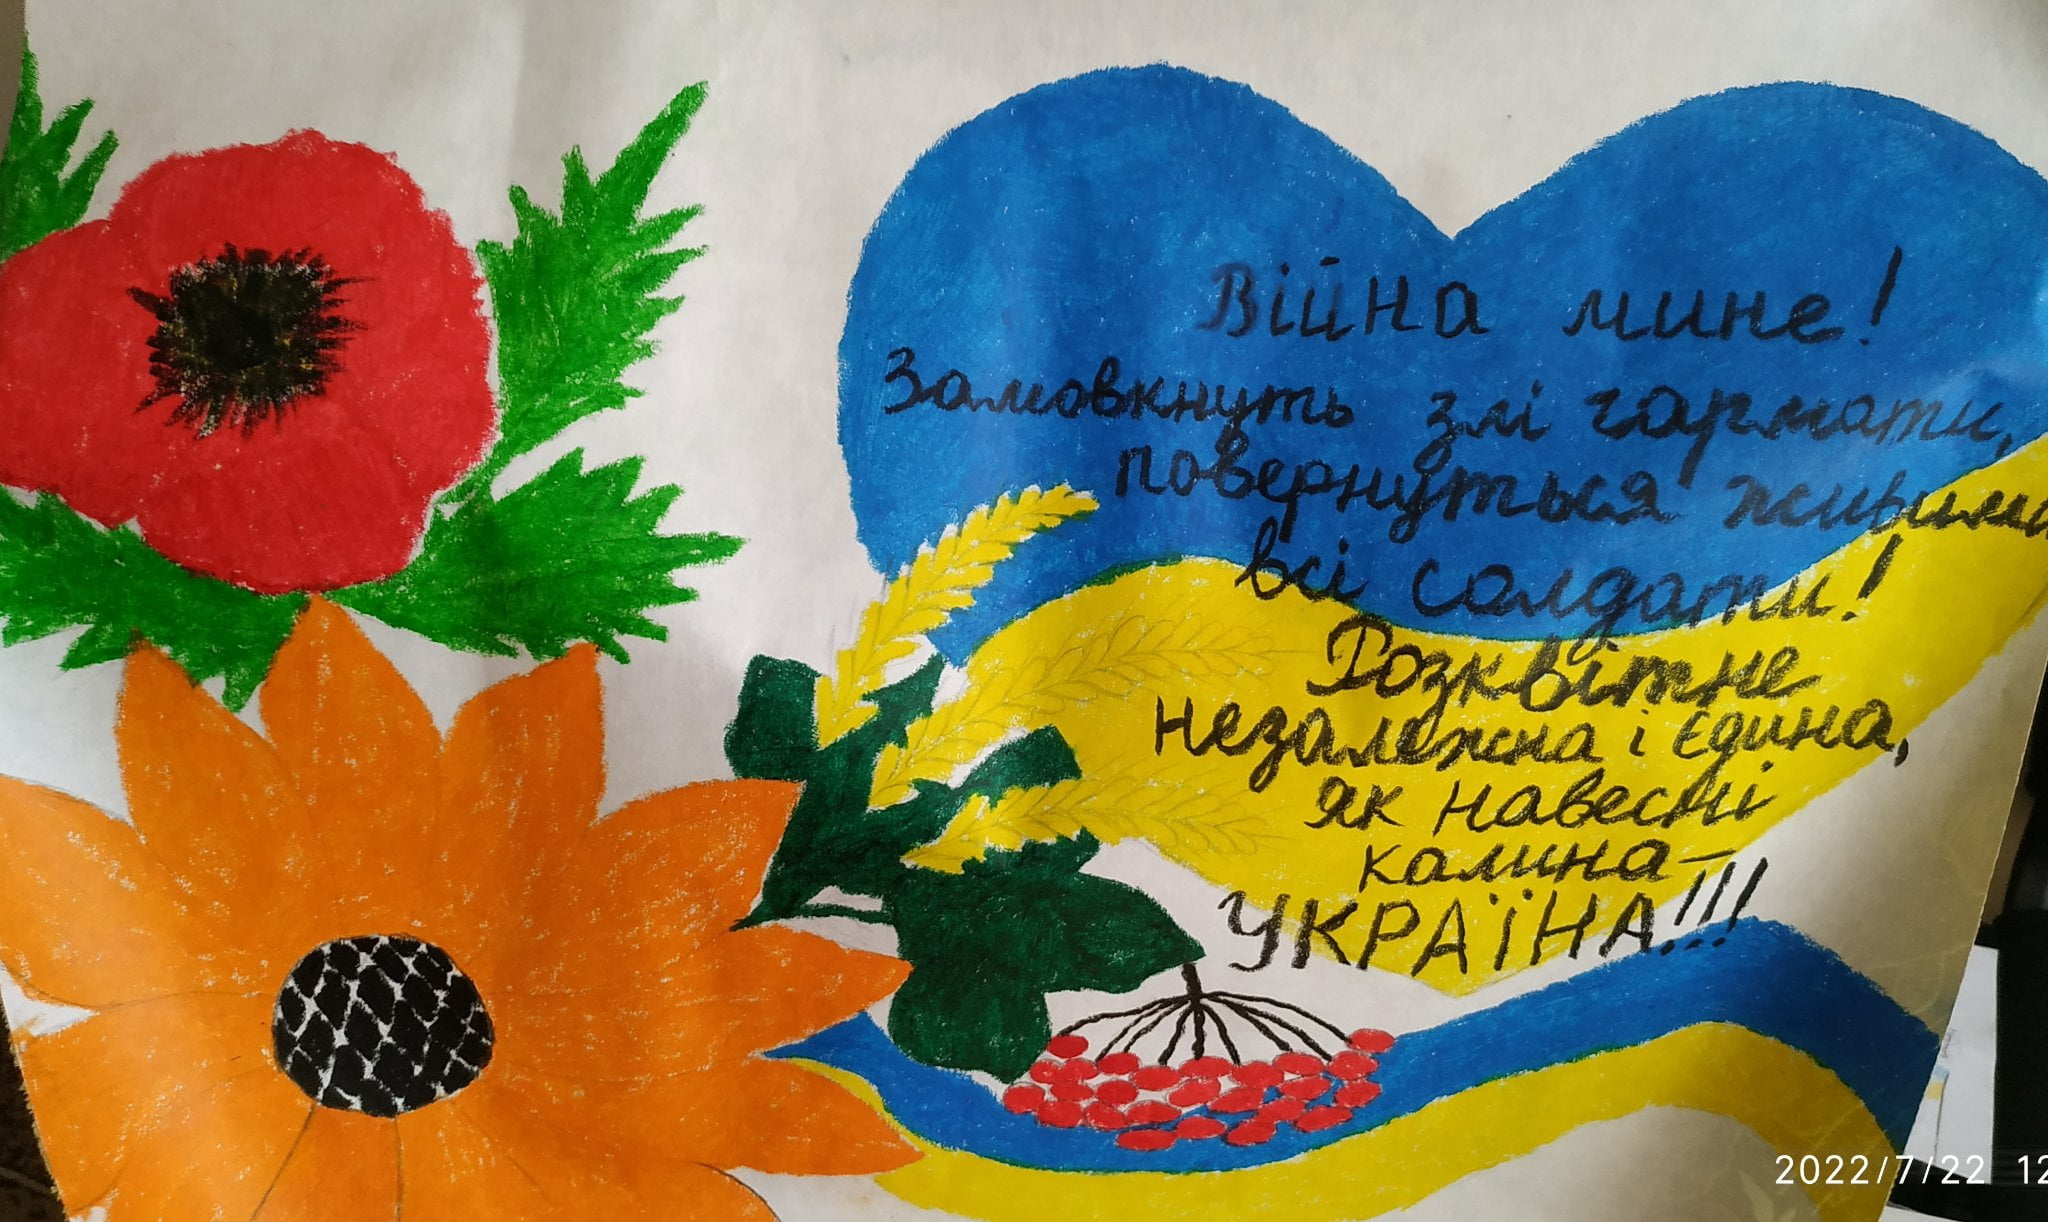 Війна мине!
Замовкнуть злі гармати,
повернуться живими
всі солдати!
Розквітне
незалежна і єдина,
як навесні
калина –
УКРАЇНА!!!
2022/7/22 12